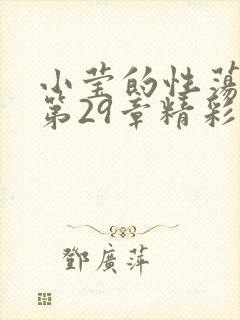 小莹的性荡
第29章精彩
鄧廣萍